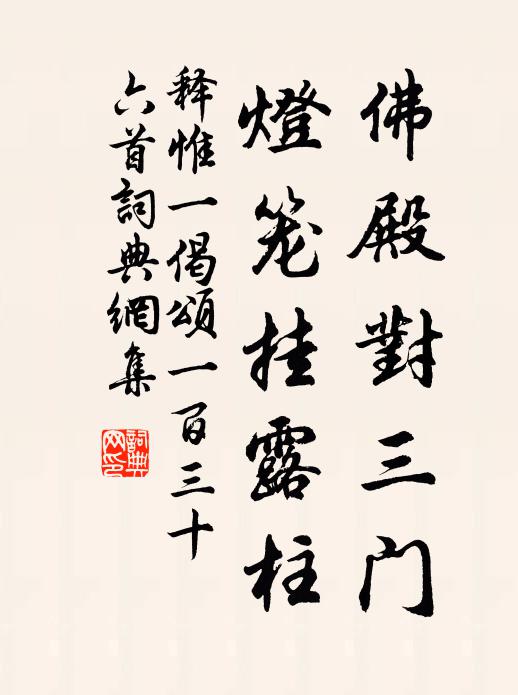 佛殿對三门
燈笼挂露柱
释惟一偈頌一百三十
六首詞典網集
詞典網印